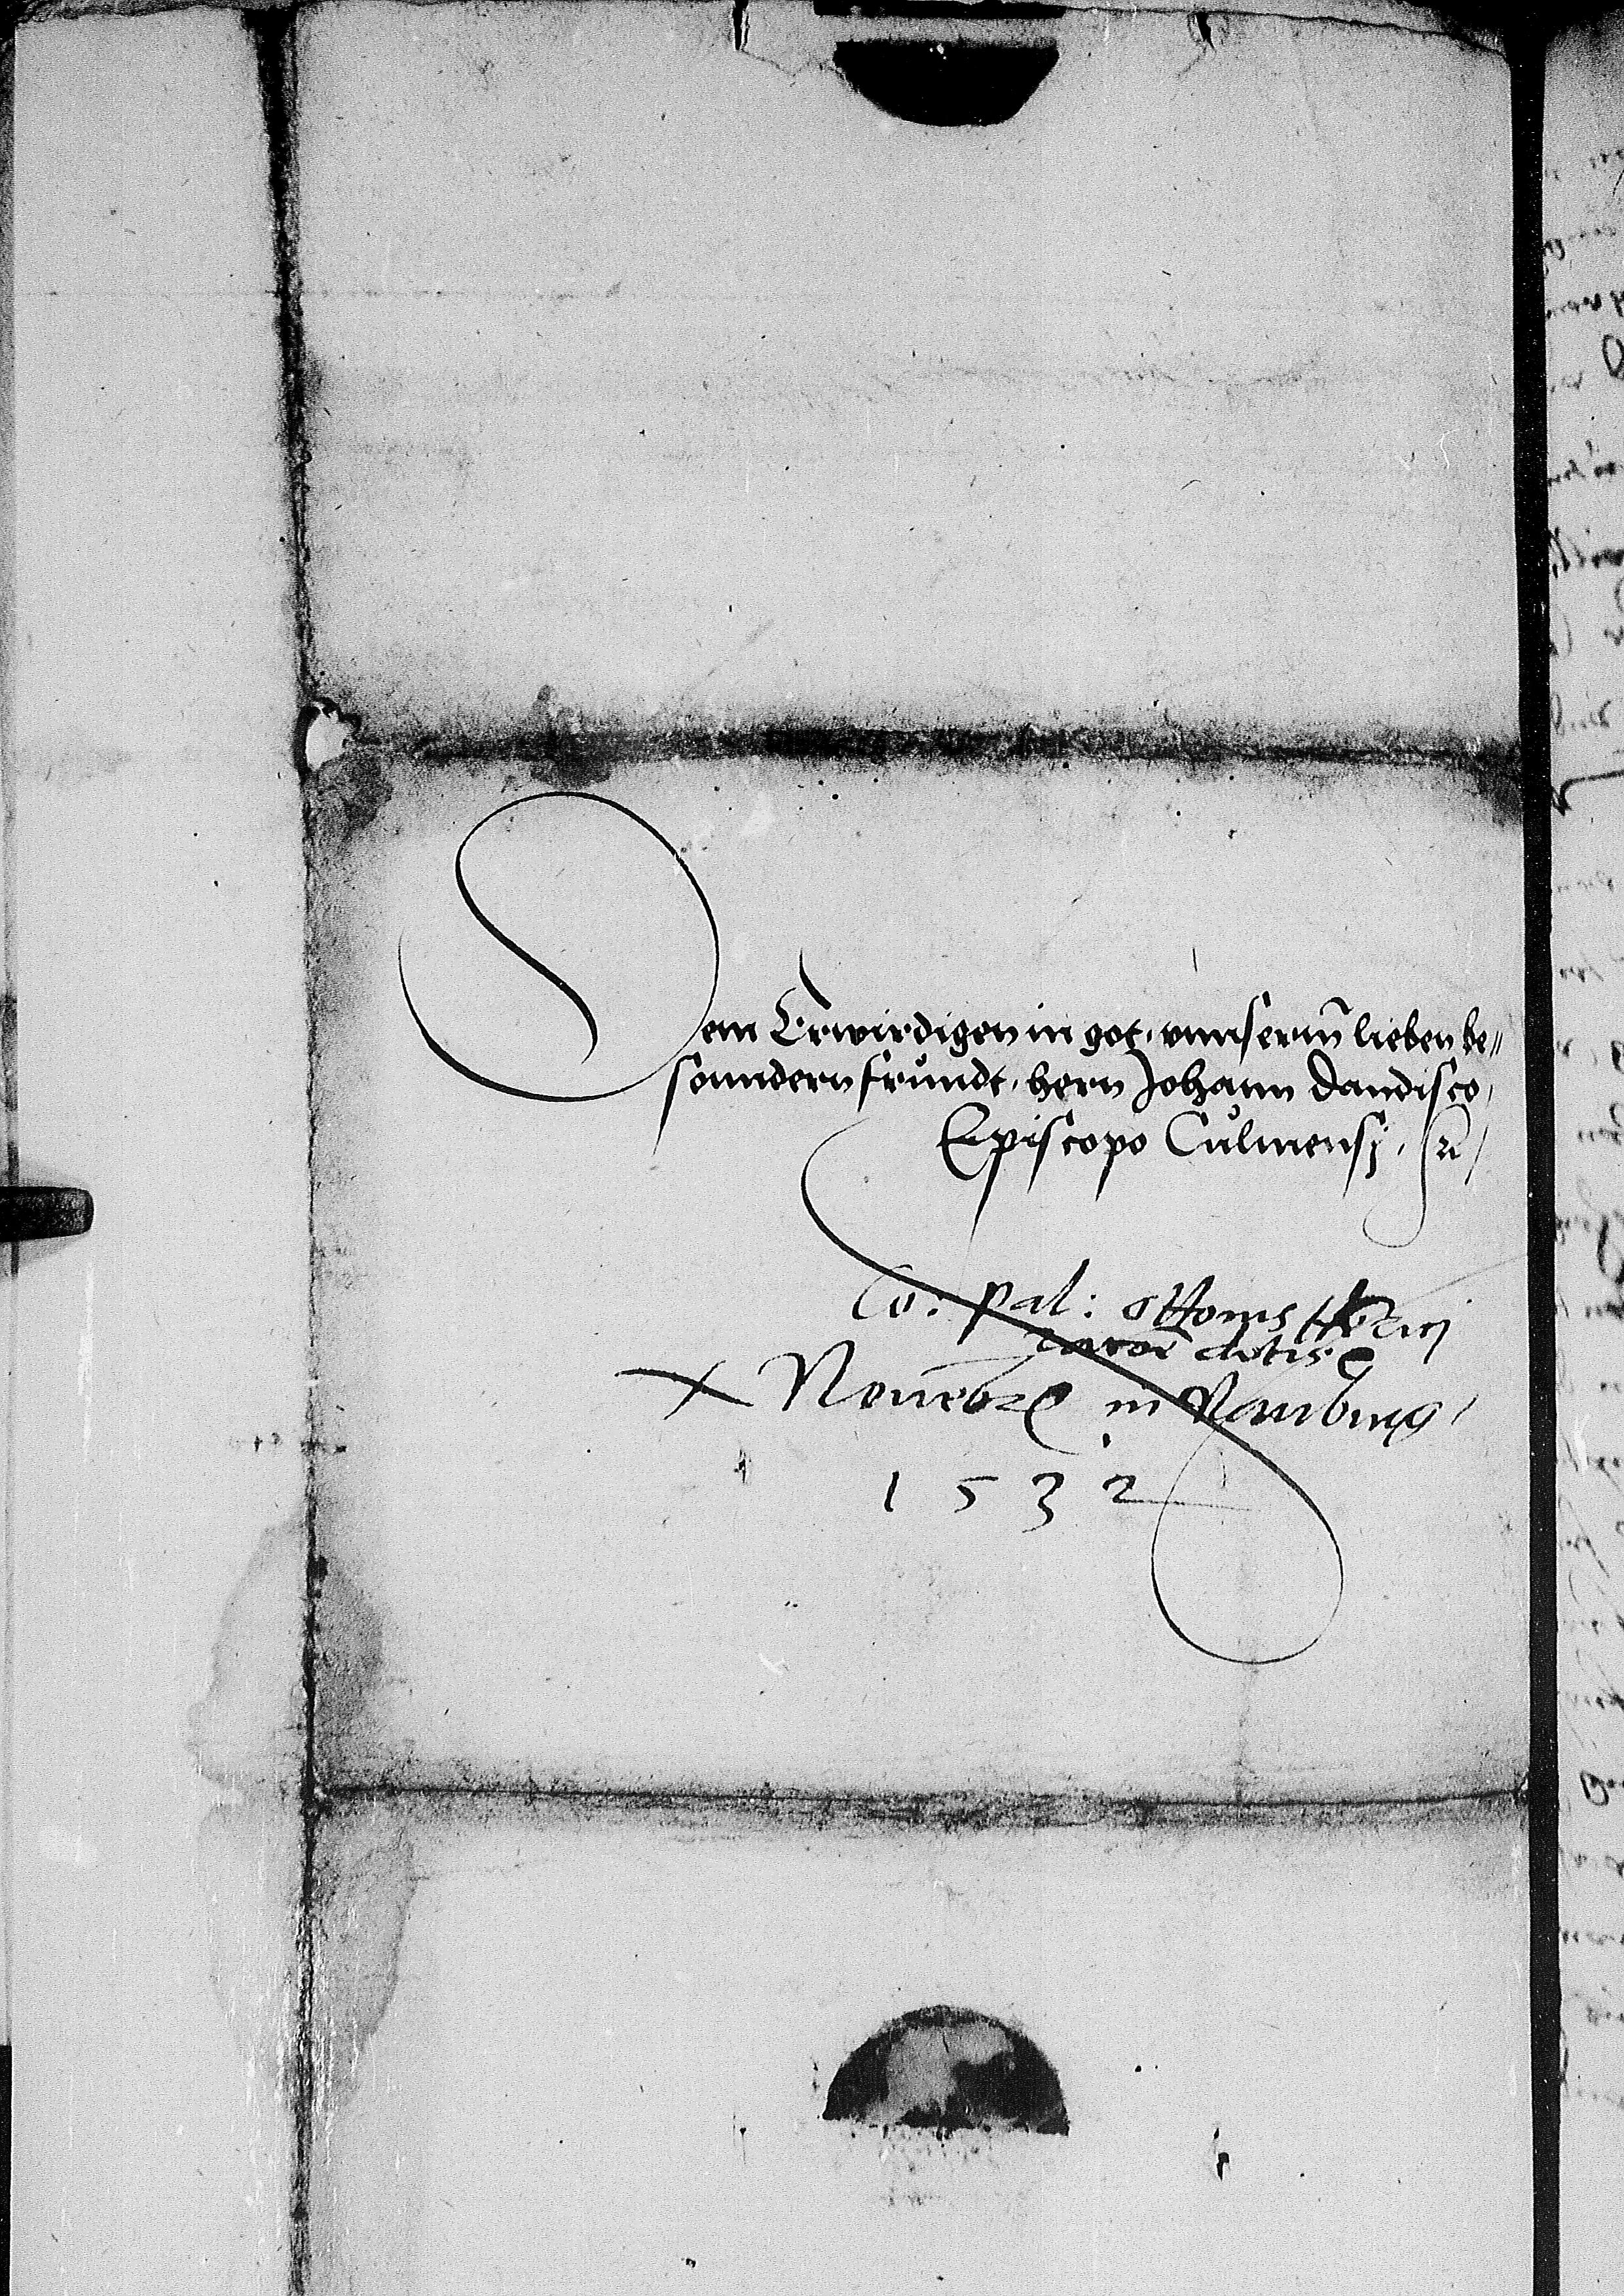 Dem Erwirdigen in got, vnnserm̃ lieben be=
sonndern frůndt, hern Johann Dandisco,
Episcopo Cůlmensj,
Co: pal: Ottonis Henrici
X Nouẽbr in Neuburg,
1532